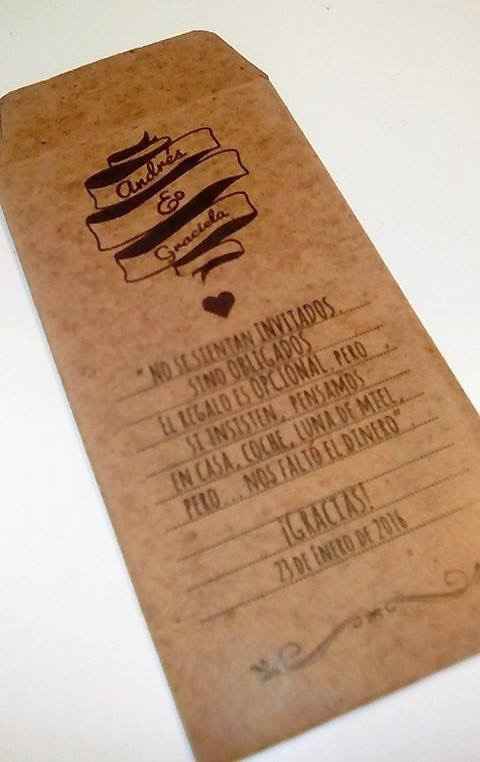 Andrés
&
Graciela
"NO SE SIENTAN INVITADOS...
SINO OBLIGADOS
EL REGALO ES OPCIONAL, PERO
SI INSISTEN, PENSAMOS
EN CASA, COCHE, LUNA DE MIEL,
PERO... NOS FALTÓ EL DINERO".
¡GRACIAS!
23 DE ENERO DE 2016